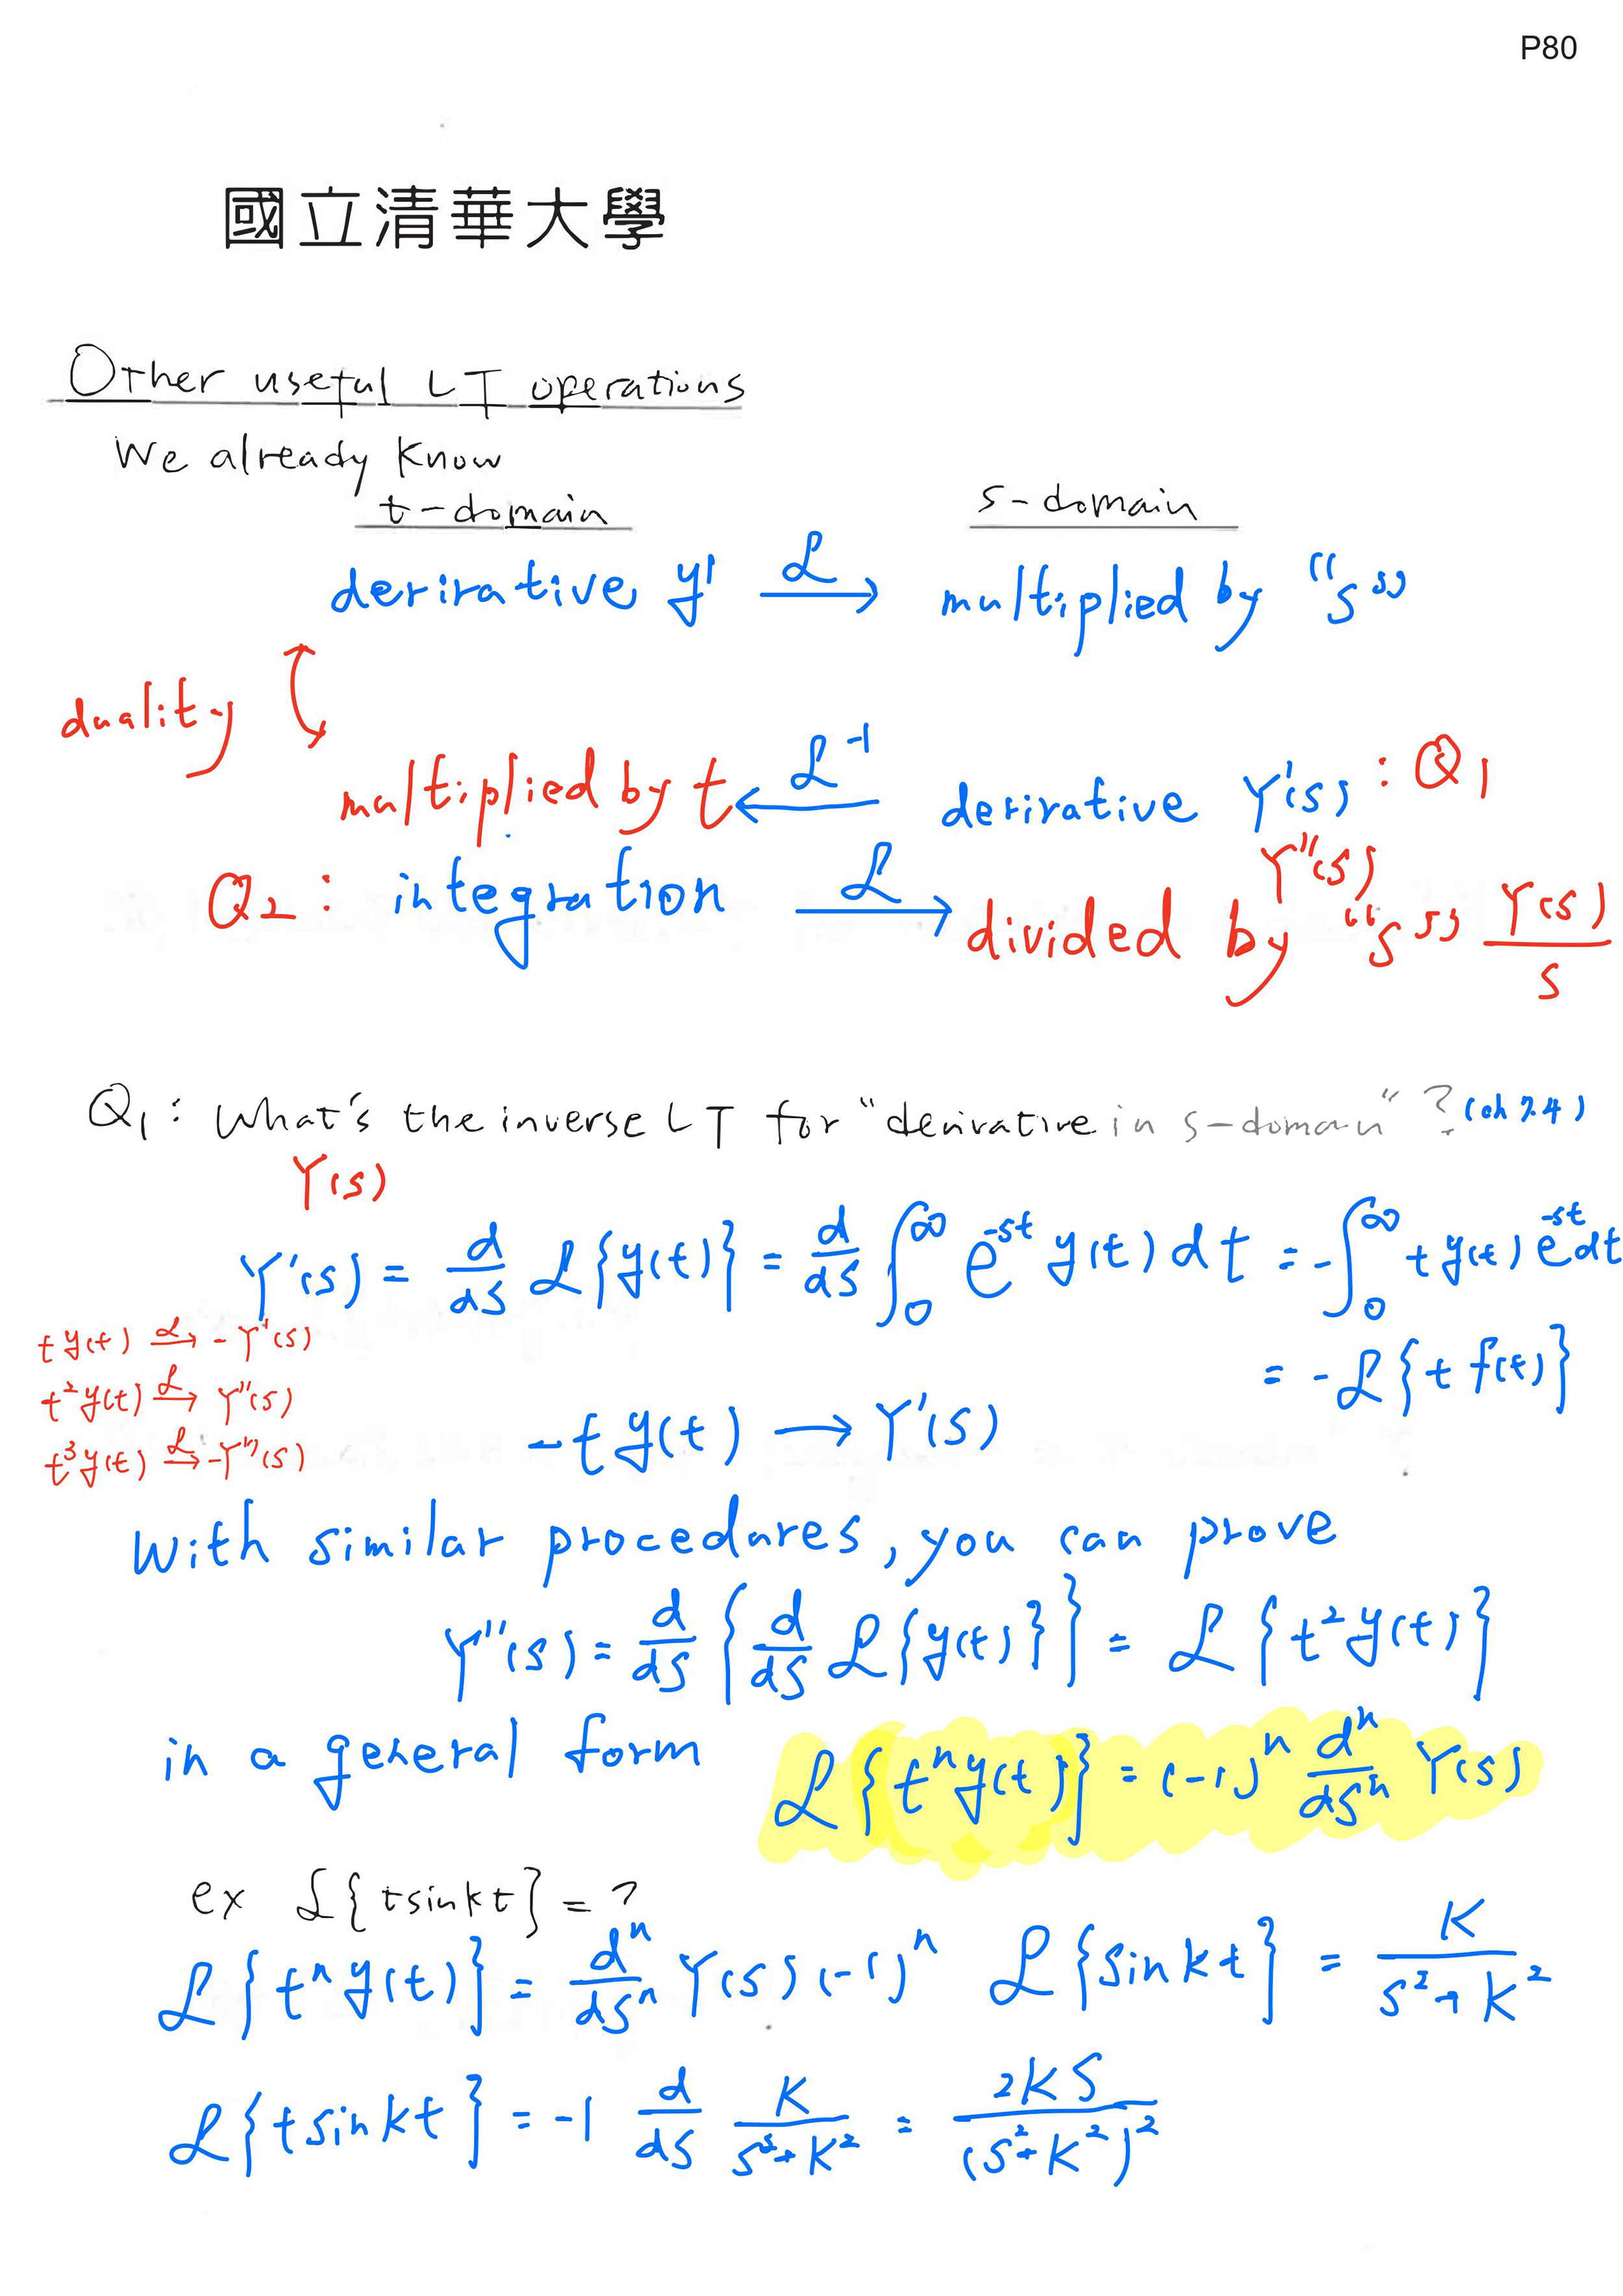 P80
國立清華大學
Other useful LT operations
We already know
t-domain s-domain
derivative y' ℒ→ multiplied by "s"
duality
multiplied by t ←ℒ⁻¹ derivative Y'(s) : Q1
Y''(s)
Q2 : integration ℒ→ divided by "s" Y(s)/s
Q1 : What's the inverse LT for "derivative in s-domain" ? (ch 7.4)
Y(s)
Y'(s) = d/ds ℒ{y(t)} = d/ds ∫₀^∞ e^-st y(t) dt = -∫₀^∞ t y(t) e^-st dt
= -ℒ{t f(t)}
t y(t) ℒ→ -Y'(s)
t² y(t) ℒ→ Y''(s)
t³ y(t) ℒ→ -Y'''(s)
-t y(t) → Y'(s)
With similar procedures, you can prove
Y''(s) = d/ds {d/ds ℒ{y(t)}} = ℒ{t² y(t)}
in a general form ℒ{tⁿ y(t)} = (-1)ⁿ dⁿ/dsⁿ Y(s)
ex ℒ{t sin kt} = ?
ℒ{tⁿ y(t)} = dⁿ/dsⁿ Y(s) (-1)ⁿ ℒ{sin kt} = K/(s²+K²)
ℒ{t sin kt} = -1 d/ds K/(s²+K²) = 2KS/(S²+K²)²